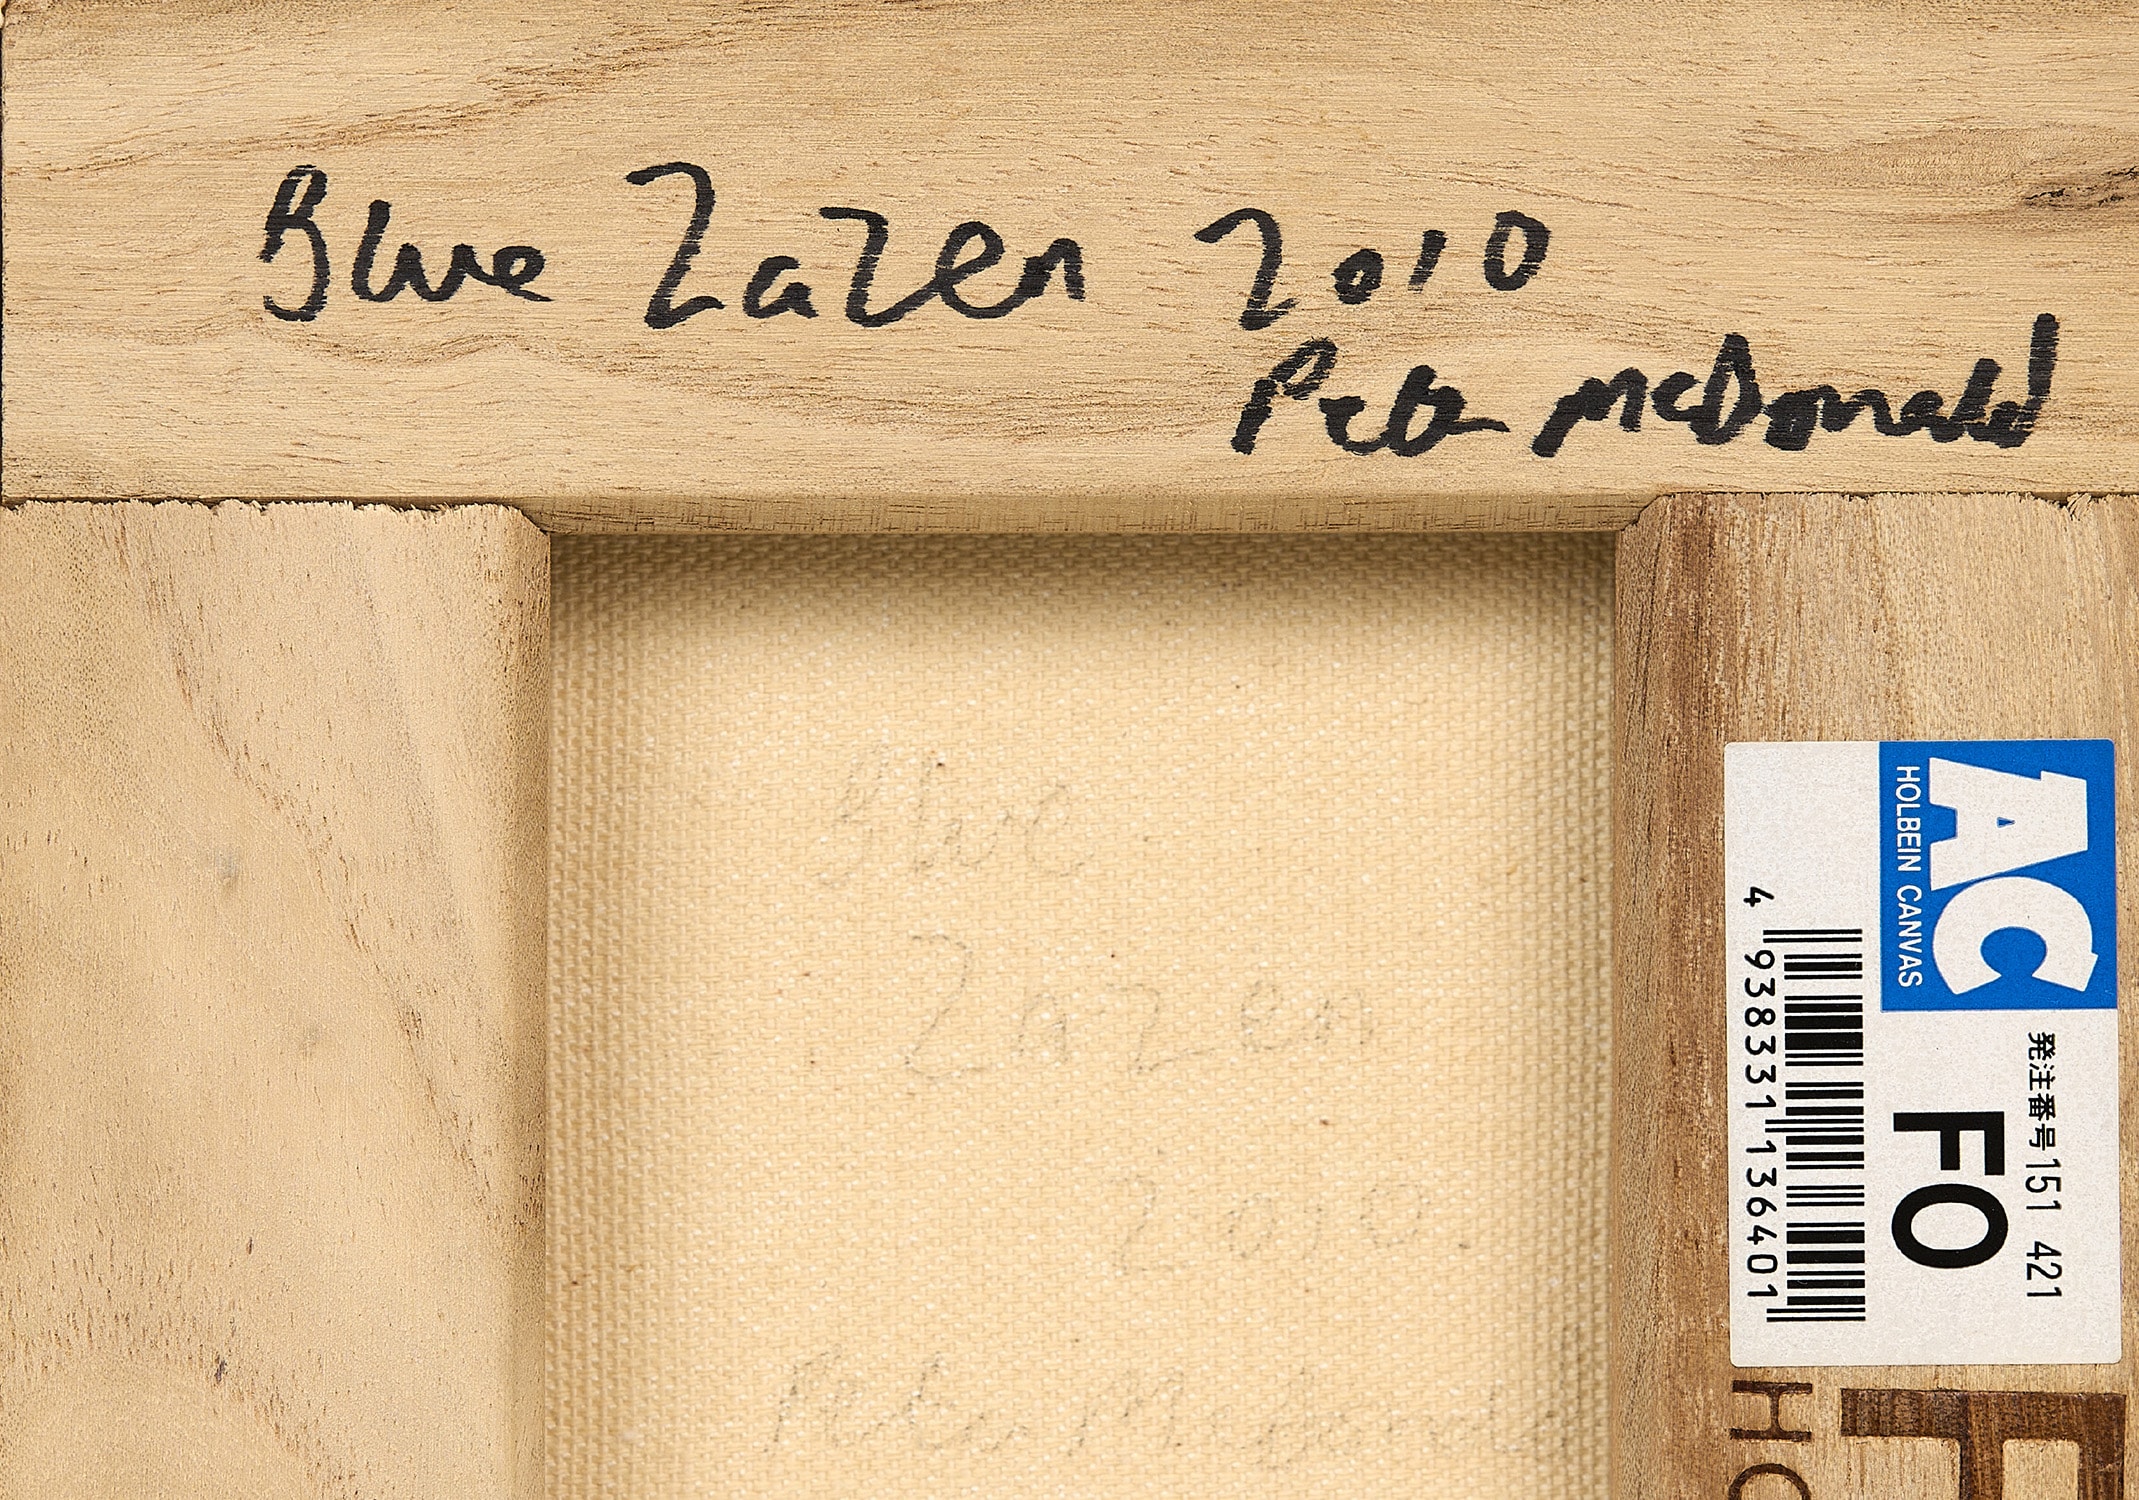 Blue Zazen 2010
Peter McDonald
Blue
Zazen
2010
Peter McDonald
AC
HOLBEIN CANVAS
発注番号151 421
F0
4 938331 136401
F
HO